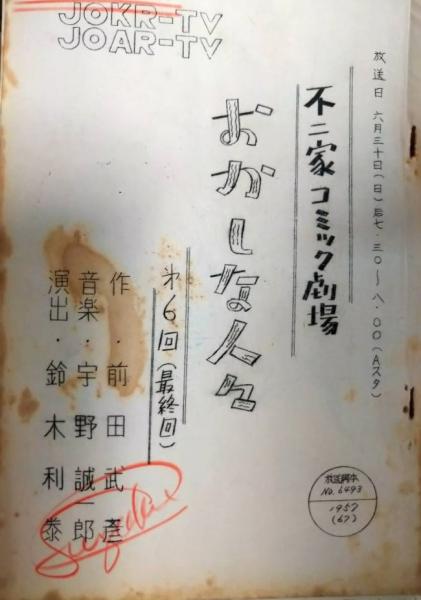 JOKR-TV
JOAR-TV
放送日 六月三十日(日)后七・三〇〜八・〇〇(Aスタ)
不二家コミック劇場
おかしな人々
才6回(最終回)
作・前田武彦
音楽・宇野誠一郎
演出・鈴木利泰
放送脚本
No.6493
1957
(67)